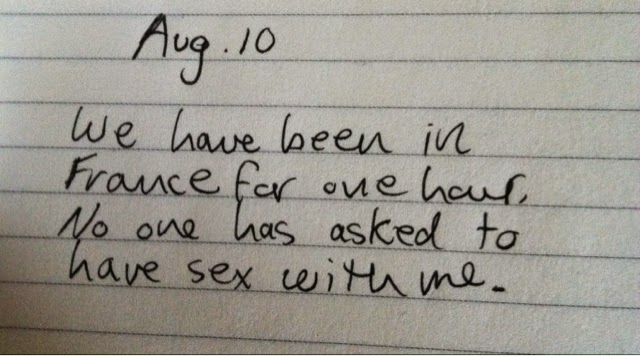 Aug. 10
We have been in
France for one hour.
No one has asked to
have sex with me.